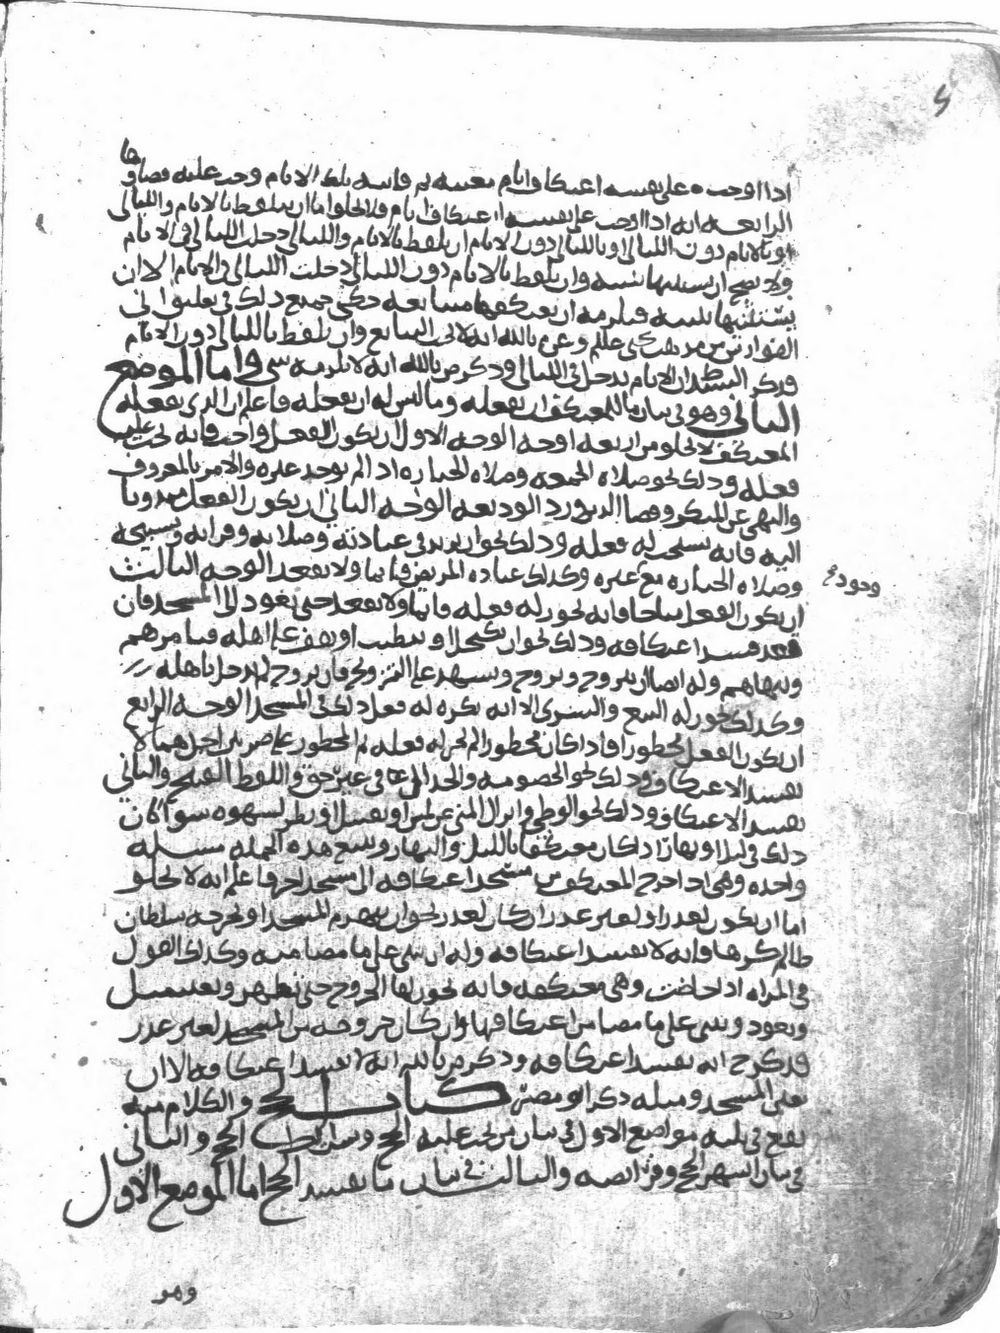 اذا اوجب على نفسه اعتكاف ايام معينة ثم فاتته تلك الايام وجب عليه قضاؤها
الرابعة انه اذا اوجب على نفسه اعتكاف ايام فلا يخلو اما ان يتلفظ بالايام والليالي
او بالايام دون الليالي او بالليالي دون الايام ان تلفظ بالايام والليالي دخلت الليالي في الايام
ولا يصح ان يستثنيها بنيته وان تلفظ بالايام دون الليالي دخلت الليالي في الايام الا ان
يستثنيها بنيته فيلزمه ان يعتكفها متتابعة ذكر جميع ذلك في تعليق
وعن بالله انه لا يجب التتابع وان تلفظ بالليالي دون الايام
فذكر ان الايام تدخل في الليالي وذكر ض بالله انه لا يلزمه شي واما الموضع
الثاني وهو في بيان ما للمعتكف ان يفعله وما ليس له ان يفعله فاعلم ان الذي يفعله
المعتكف لا يخلو من اربعة اوجه الوجه الاول ان يكون الفعل واجبا فانه يجب عليه
فعله وذلك نحو صلاة الجمعة وصلاة الجنازة اذا لم يوجد غيره والامر بالمعروف
والنهي عن المنكر وقضا الدين ورد الوديعة الوجه الثاني ان يكون الفعل مندوبا
اليه فانه يستحب له فعله وذلك نحو ان يزيد في عبادته وصلاته وقراته وتسبيحه
وصلاة الجنازة مع غيره وكذلك عيادة المريض قايما ولا يقعد الوجه الثالث
ان يكون الفعل مباحا فانه يجوز له فعله قايما ولا يقعد حتى يعود الى المسجد فان
قعد فسد اعتكافه وذلك نحو ان يكتحل او يتطيب او يقف على اهله فيامرهم
وينهاهم وله ايضا ان يتزوج ويزوج ويشهد على التزويج فان تزوج لم يدخل باهله
وكذلك يجوز له البيع والشرى الا انه يكره له فعل ذلك في المسجد الوجه الرابع
ان يكون الفعل محظورا فاذا كان محظورا لم يجز له فعله ثم المحظور على ضربين احدهما لا
يفسد الاعتكاف وذلك نحو الخصومة والجدال في غير حق واللفظ القبيح والثاني
يفسد الاعتكاف وذلك نحو الوطي وانزال المني عن لمس او تقبيل او نظر لشهوة سوا كان
ذلك في ليل او نهار اذا كان معتكفا بالليل والنهار ويتبع هذه الجملة مسئلة
واحدة وهي اذا خرج المعتكف من مسجد اعتكافه الى مسجد اخر فاعلم انه لا يخلو
اما ان يكون لعذر او لغير عذر ان كان لعذر نحو ان ينهدم المسجد او يخرجه سلطان
ظالم كرها فانه لا يفسد اعتكافه وله ان يبني على ما مضا منه وكذلك القول
في المراة اذا حاضت وهي معتكفة فانه يجوز لها الخروج حتى تطهر وتغتسل
وتعود وتبني على ما مضا من اعتكافها وان كان خروجه من المسجد لغير عذر
فذكر ح انه يفسد اعتكافه وذكر ض بالله انه لا يفسد اعتكافه الا ان
المسجد ومثله ذكر ابو مضر كتاب الحج والكلام منه
يقع في ثلثة مواضع الاول في بيان من يجب عليه الحج وشرايط الحج والثاني
في بيان اشهر الحج وفرائضه والثالث في بيان ما يفسد الحج اما الموضع الاول
وهو